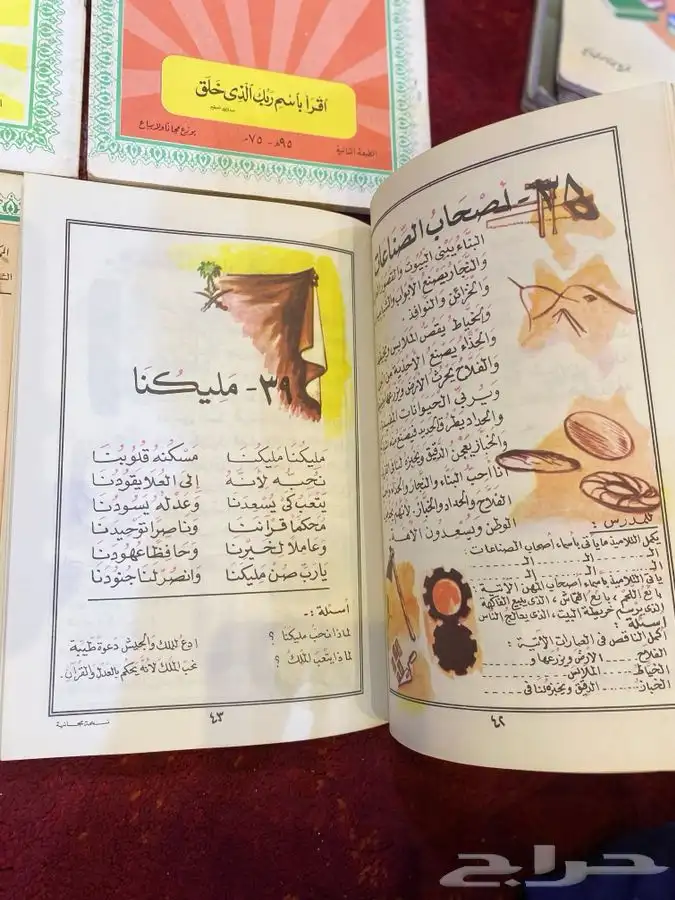 اقرأ باسم ربك الذي خلق
يوزع مجانا ولا يباع
٩٥هـ - ٧٥م
الطبعة الثانية
٣٨- أصحاب الصناعات
البناء يبني البيوت والقصور
والنجار يصنع الأبواب
والخزائن والنوافذ
والخياط يقص الملابس
والحذاء يصنع الأحذية من
والفلاح يحرث الأرض ويزرعها
ويربي الحيوانات
والحداد يطرق الحديد فيصنع منه
والخباز يعجن الدقيق ويخبزه لنا في
أنا أحب البناء والنجار والحذاء
الفلاح والحداد والخباز لأنهم
الوطن ويسعدون الأمة
للمدرس :
يكمل التلاميذ ما يأتي بأسماء أصحاب الصناعات :
الـ ــــ الـ ــــ الـ
الـ ــــ الـ ــــ الـ
يأتي التلاميذ بأسماء أصحاب المهن الآتية :
بائع اللحم ، بائع القماش ، الذي يبيع الفاكهة
الذي يرسم خريطة البيت ، الذي يعالج الناس
أسئلة :
أكمل الناقص في العبارات الآتية :
الفلاح ........ الأرض ويزرعها و ........
الخياط ........ الملابس ........
الخباز ........ الدقيق ويخبزه لنا في ........
٤٢
٣٩- مليكنا
مليكنا مليكنا مسكنه قلوبنا
نحبه لأنه إلى العلا يقودنا
يتعب كي يسعدنا وعدله يسودنا
محكما قرآننا وناصرا توحيدنا
وعاملا لخيرنا وحافظا عهودنا
يارب صن مليكنا وانصر لنا جنودنا
أسئلة :-
لماذا نحب مليكنا ؟
لماذا يتعب الملك ؟
ادع للملك والجيش دعوة طيبة
نحب الملك لأنه يحكم بالعدل والقرآن .
٤٣
نسخة مجانية
حراج